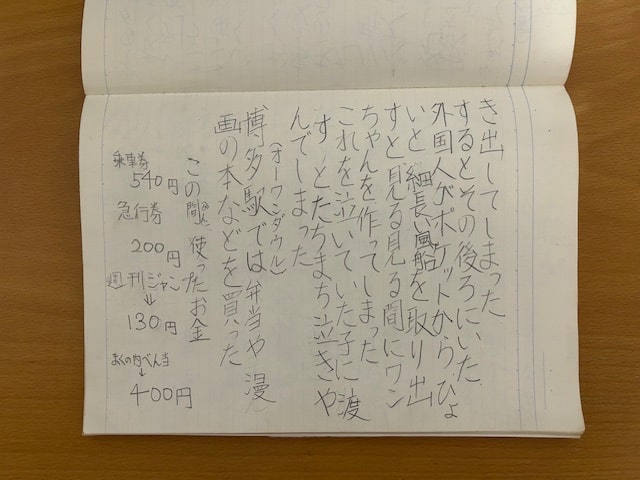 き出してしまった
するとその後ろにいた
外国人がポケットからひょ
いと細長い風船を取り出
すと見る見る間にワン
ちゃんを作ってしまった
これを泣いていた子に渡
すーとたちまち泣きや
んでしまった
(オーワンダウル)
博多駅では弁当や漫
画の本などを買った
この間使ったお金
乗車券
540円
急行券
200円
週刊ジャン
↓
130円
まくの内べん当
↓
400円